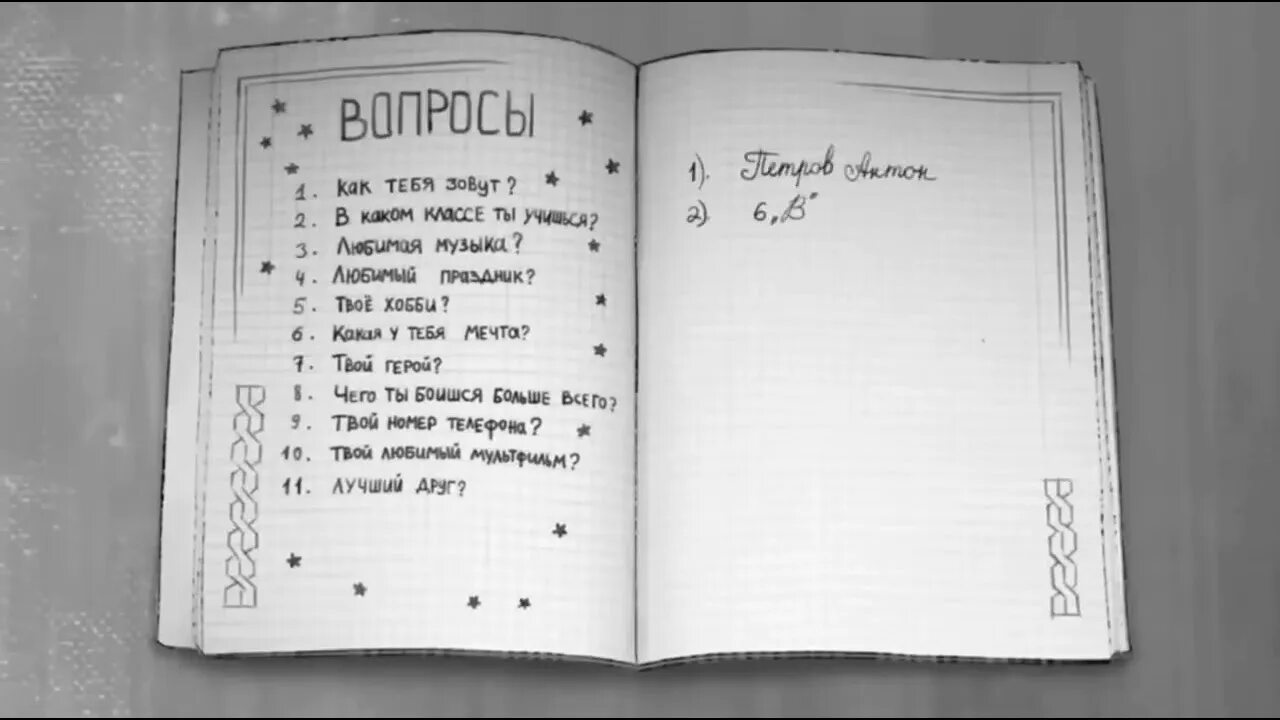 ВОПРОСЫ
1. Как тебя зовут?
2. В каком классе ты учишься?
3. Любимая музыка?
4. Любимый праздник?
5. Твоё хобби?
6. Какая у тебя мечта?
7. Твой герой?
8. Чего ты боишся больше всего?
9. Твой номер телефона?
10. Твой любимый мультфильм?
11. Лучший друг?
1). Петров Антон
2). 6 „В"